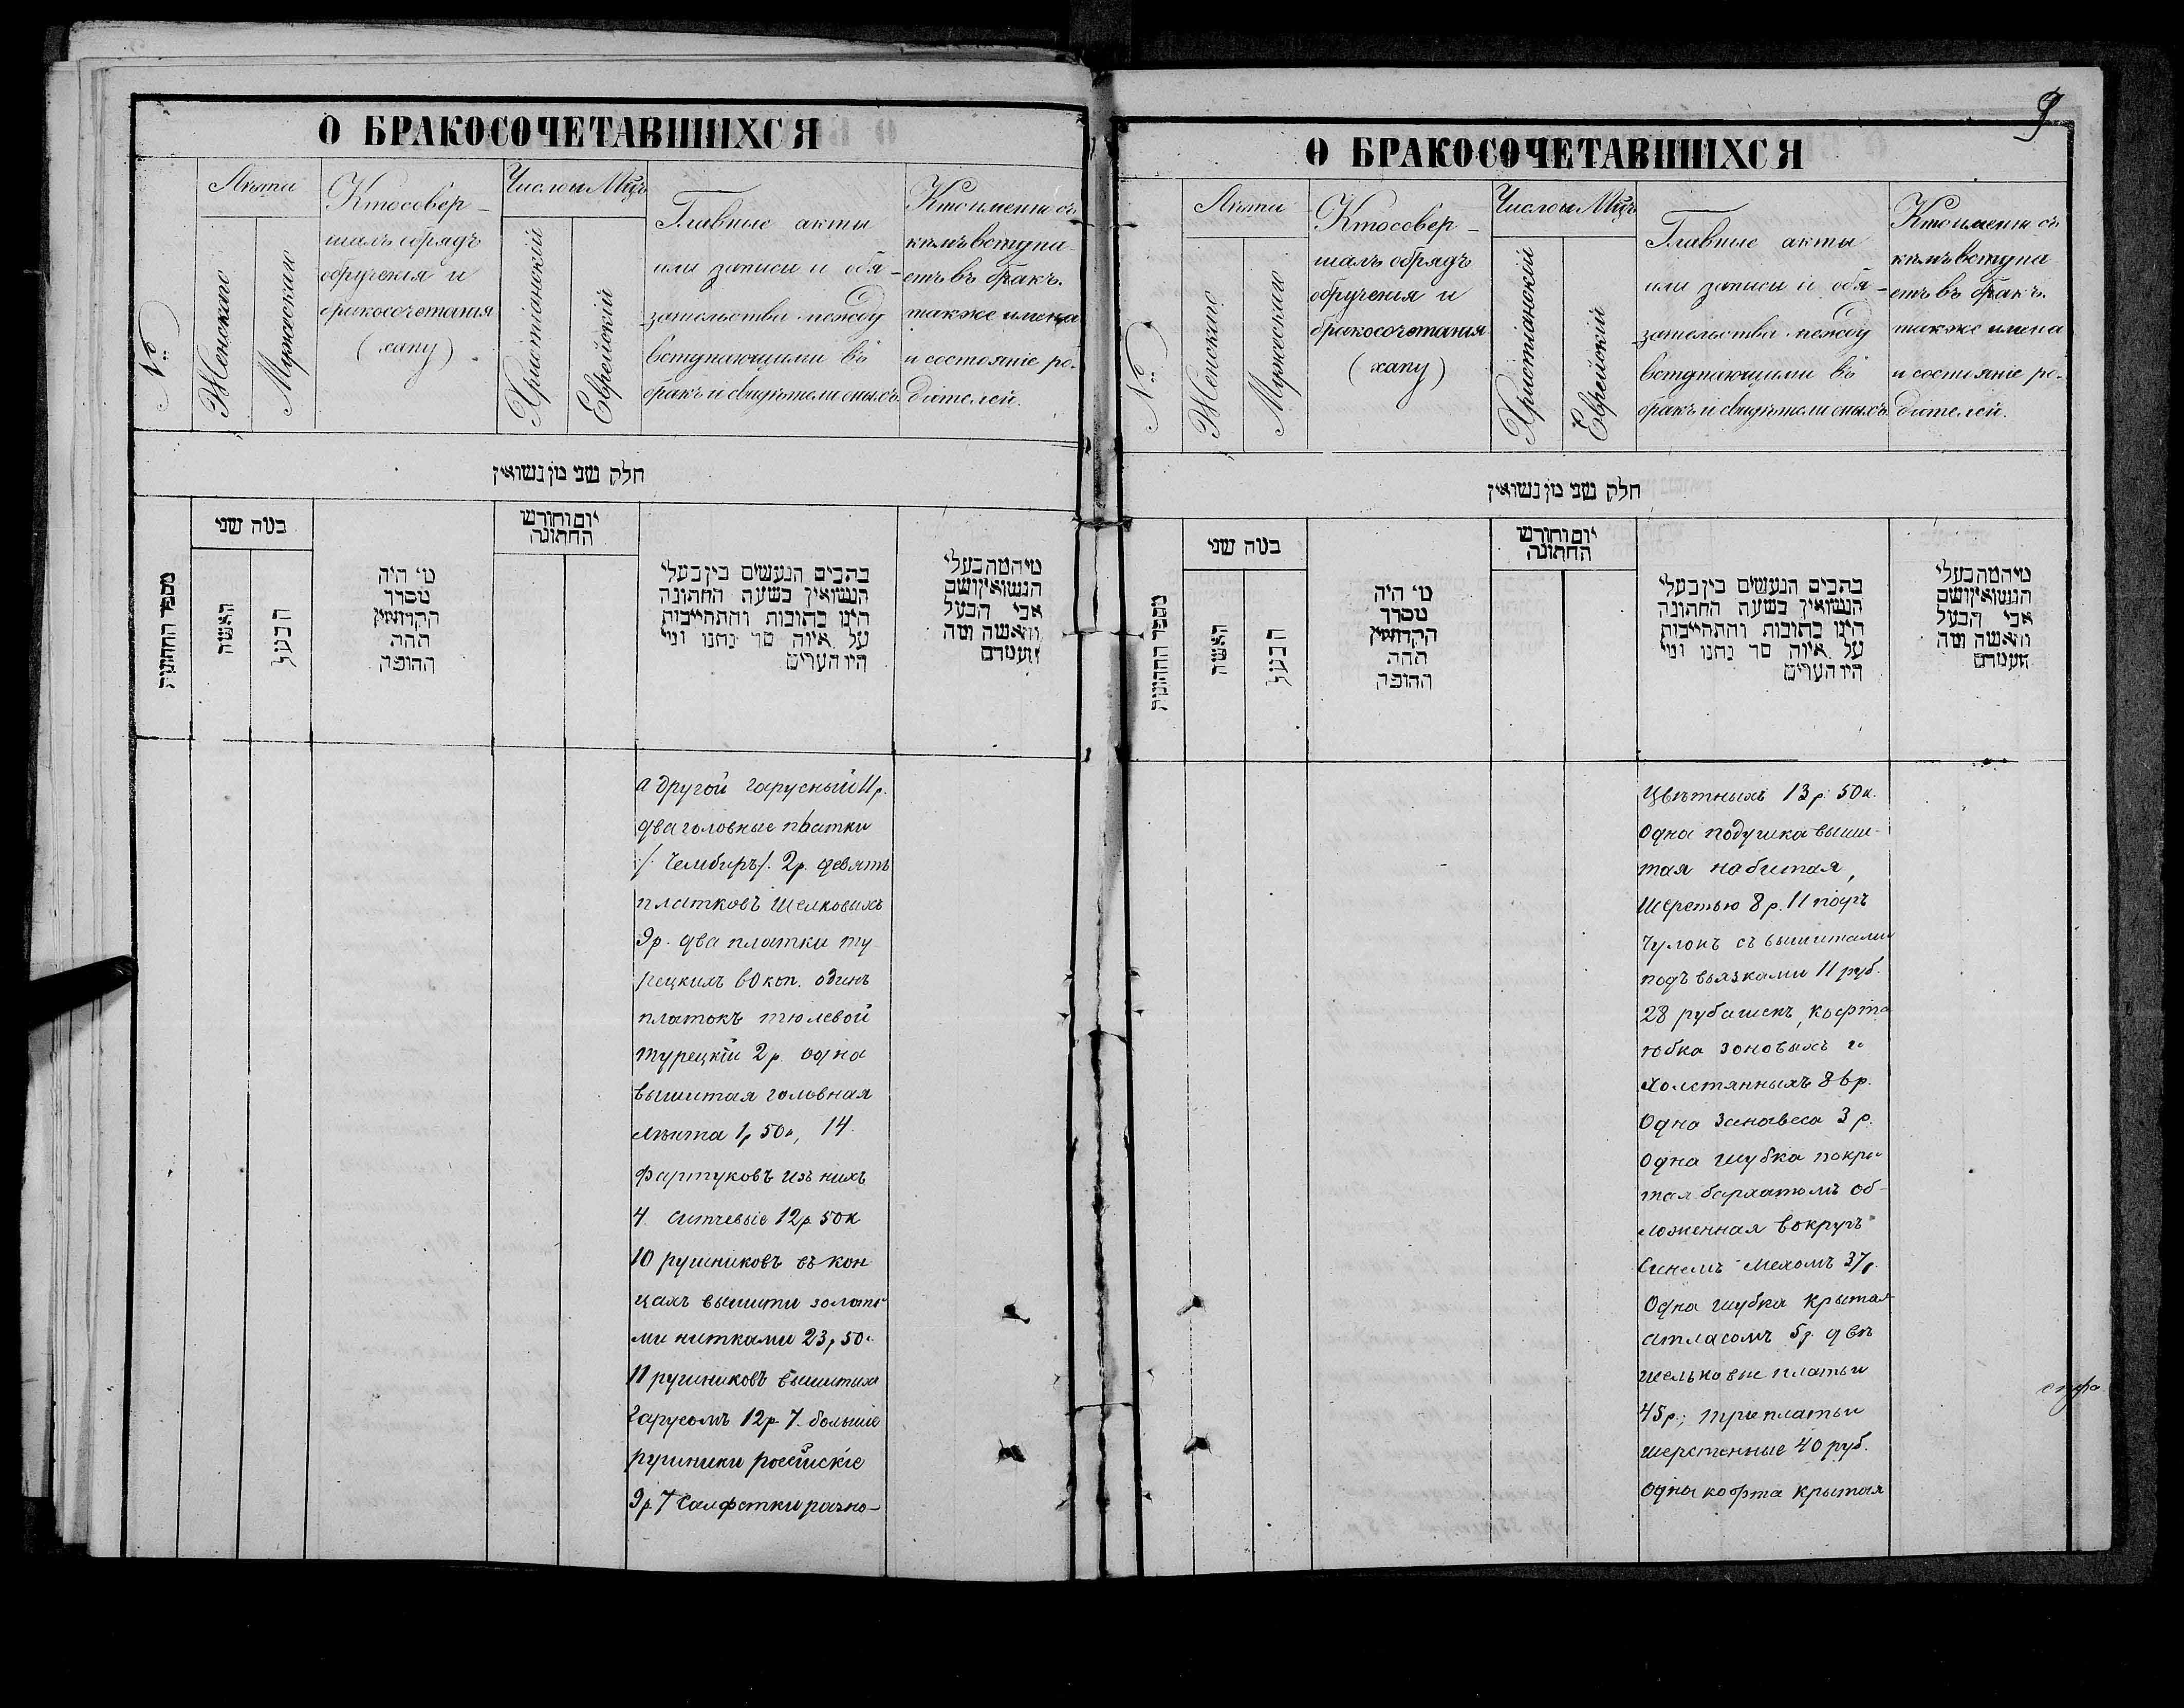 О БРАКОСОЧЕТАВШИХСЯ
№
Лѣта
Женскаго
Мужескаго
Кто совер-
шалъ обрядъ
обрученія и
бракосочетанія
(хапу)
Число и Мѣцъ
Христіанскій
Еврейскій
Главные акты
или записи и обя-
зательства между
вступающими въ
бракъ и свидѣтели оныхъ
Кто именно съ
кѣмъ вступа-
етъ въ бракъ.
также имена
и состояніе ро-
дителей.
חלק שני מן נשואין
מספר החתונות
במה שני
האשה
הבעל
מי היה
מסדר
הקדושין
ההה
החופה
יום וחודש
החתונה
כתבים הנעשים בין בעלי
הנשואין בשעה החתונה
הינו כתובות והתחייבות
על איזה סך נתנו ומי
היו העדים
מיהמה בעלי
הנשואין ושם
אבי הבעל
והאשה ומה
מעמדם
а другой гарусный 11 р.
два головные платки
/. Чембиръ/. 2р. девять
платковъ шелковыхъ
9р. два платки ту-
рецкихъ 60 коп. одинъ
платокъ тюлевой
турецкій 2 р. одна
вышитая головная
лѣнта 1р 50к, 14
фартуковъ изъ нихъ
4 ситчевые 12р 50к
10 рушниковъ въ кон
цахъ вышити золоты
ми нитками 23р 50к
11 рушниковъ вышитых
гарусомъ 12р. 7. большіе
рушники россійскіе
9р. 7 Салфетки разно-
9
О БРАКОСОЧЕТАВШИХСЯ
№
Лѣта
Женскаго
Мужескаго
Кто совер-
шалъ обрядъ
обрученія и
бракосочетанія
(хапу)
Число и Мѣцъ
Христіанскій
Еврейскій
Главные акты
или записи и обя-
зательства между
вступающими въ
бракъ и свидѣтели оныхъ
Кто именно съ
кѣмъ вступа
етъ въ бракъ.
также имена
и состояніе ро-
дителей.
חלק שני מן נשואין
מספר החתונות
במה שני
האשה
הבעל
מי היה
מסדר
הקדושין
ההה
החופה
יום וחודש
החתונה
כתבים הנעשים בין בעלי
הנשואין בשעה החתונה
הינו כתובות והתחייבות
על איזה סך נתנו ומי
היו העדים
מיהמה בעלי
הנשואין ושם
אבי הבעל
והאשה ומה
מעמדם
Цвѣтныхъ 13р. 50к.
Одна подушка выши-
тая набитая,
шерстью 8 р. 11 паръ
чулокъ съ вышитыми
подъ вязками 11 руб.
28 рубашекъ, кофта
юбка зоновыхъ и
холстянныхъ 86р.
Одна занавеса 3 р.
Одна шубка покры
тая бархатомъ об-
ложенная вокругъ
Синемъ мехомъ 37р.
Одна шубка крытая
атласомъ 5р. двѣ
шельковые платьи
45р.; три платьи
шерстенные 40 руб.
Одна кофта крытая